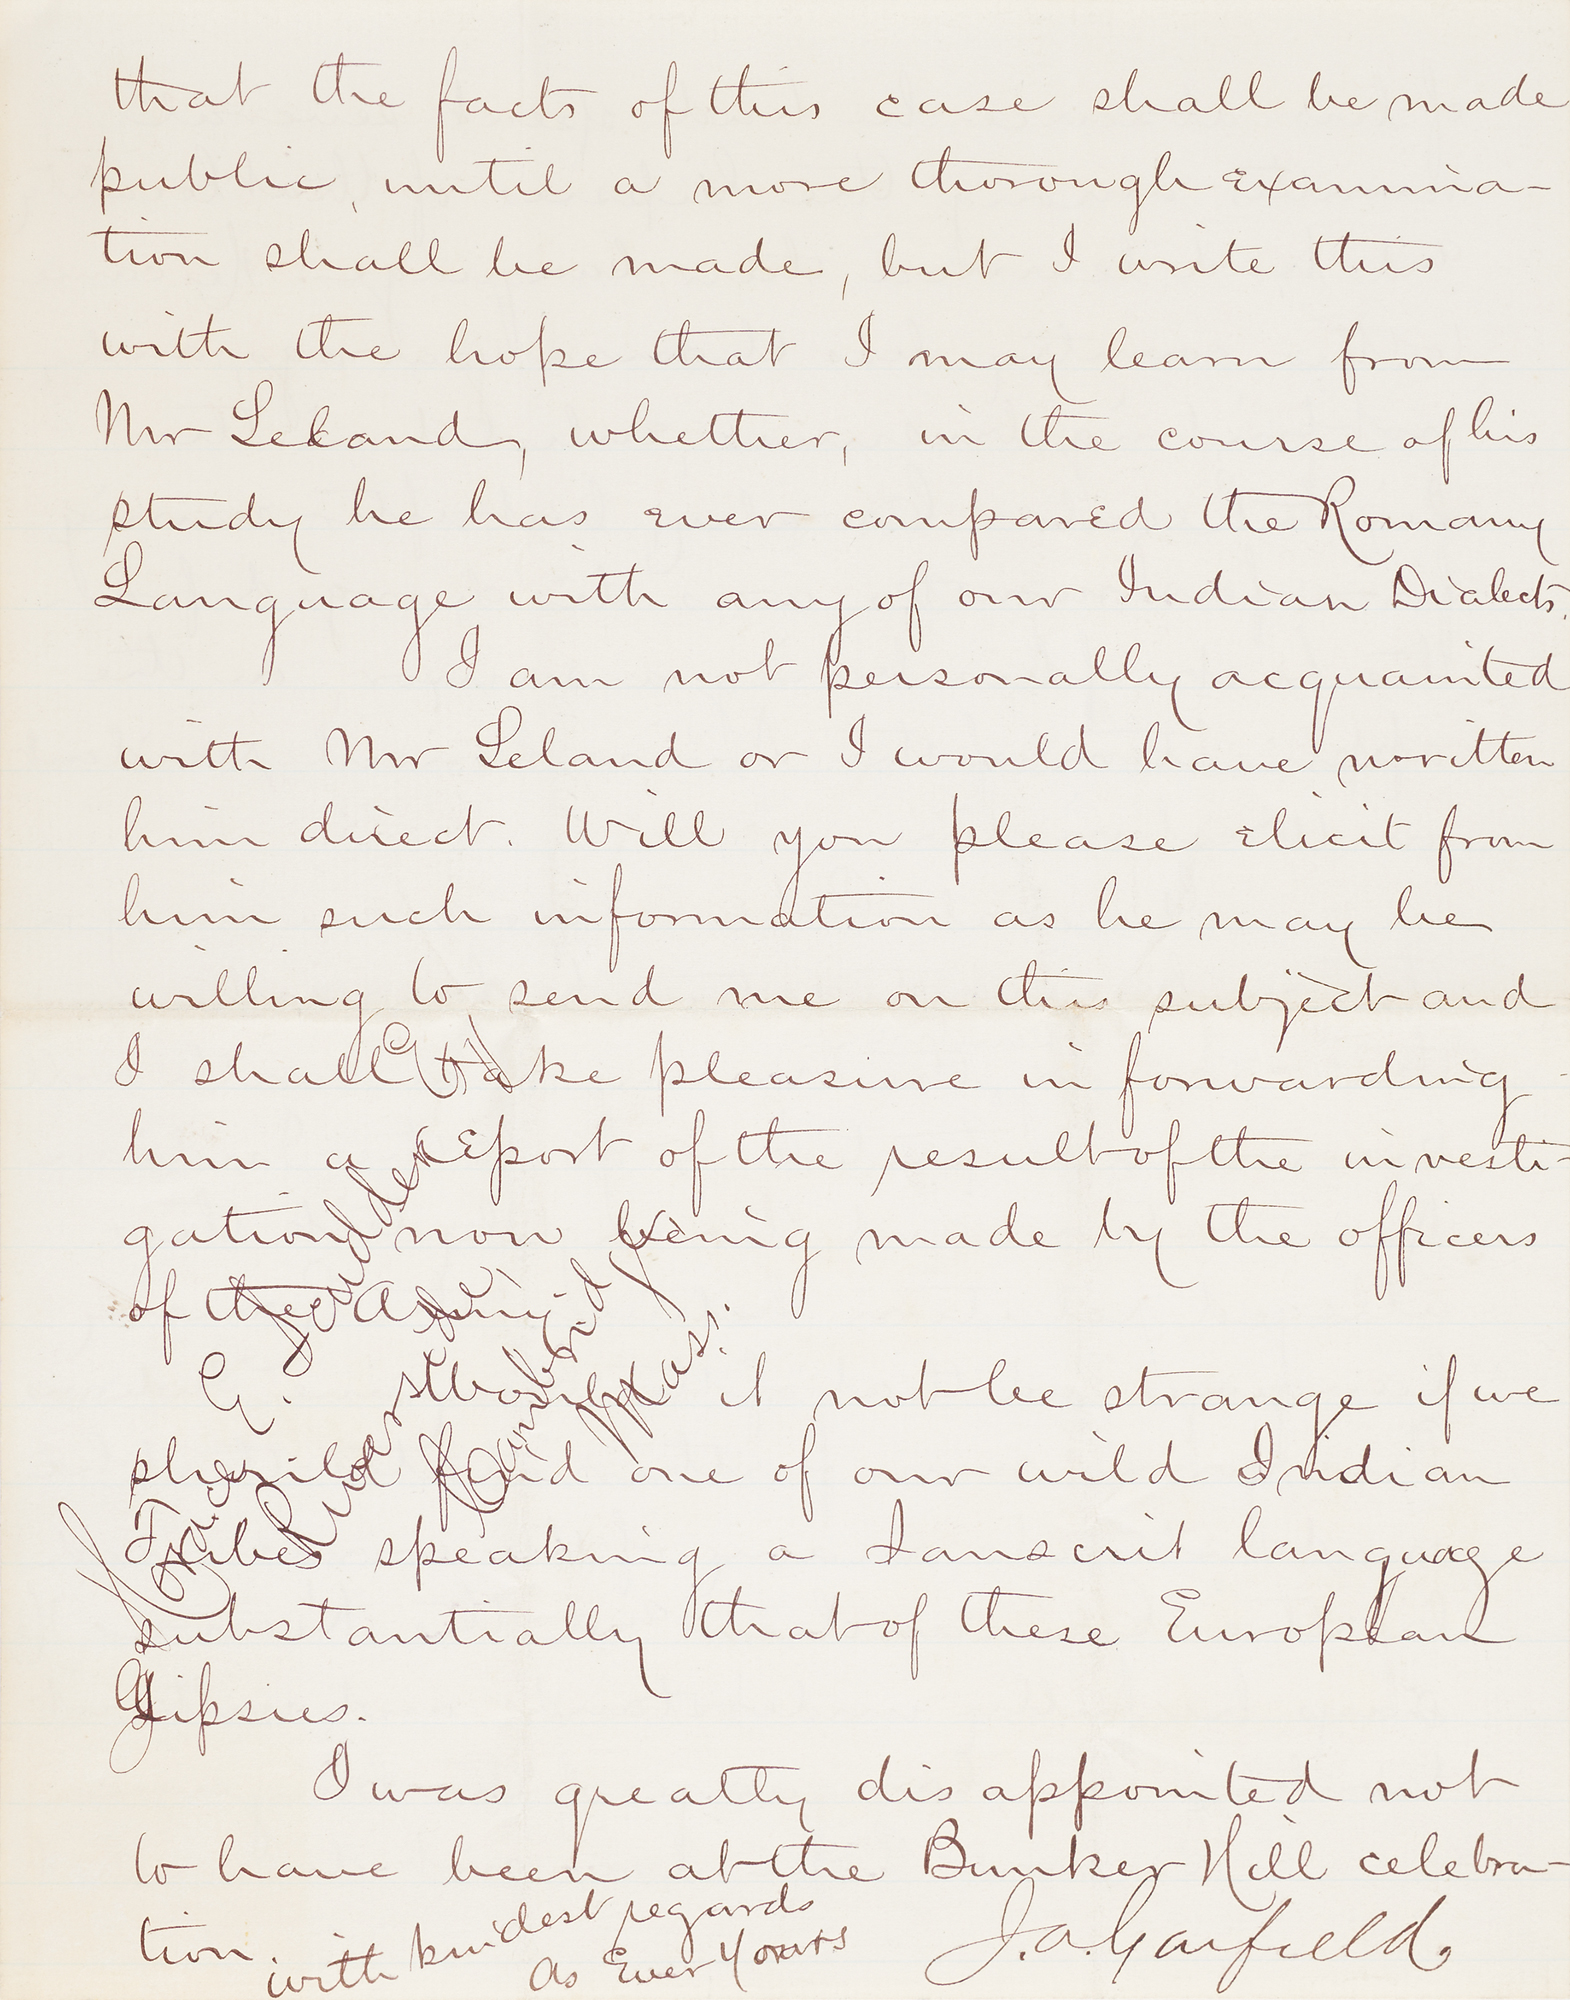 that the facts of this case shall be made
public, until a more thorough examina-
tion shall be made, but I write this
with the hope that I may learn from
Mr Leland, whether, in the course of his
study he has ever compared the Romany
Language with any of our Indian Dialects.
I am not personally acquainted
with Mr Leland or I would have written
him direct. Will you please elicit from
him such information as he may be
willing to send me on this subject and
I shall take pleasure in forwarding
him a report of the result of the investi-
gation now being made by the officers
of the Army.
Would it not be strange if we
should find one of our wild Indian
Tribes speaking a Sanscrit language
substantially that of these European
Gipsies.
I was greatly disappointed not
to have been at the Bunker Hill celebra-
tion.
with kindest regards
As Ever Yours
J. A. Garfield.
Cambridge
Mass.